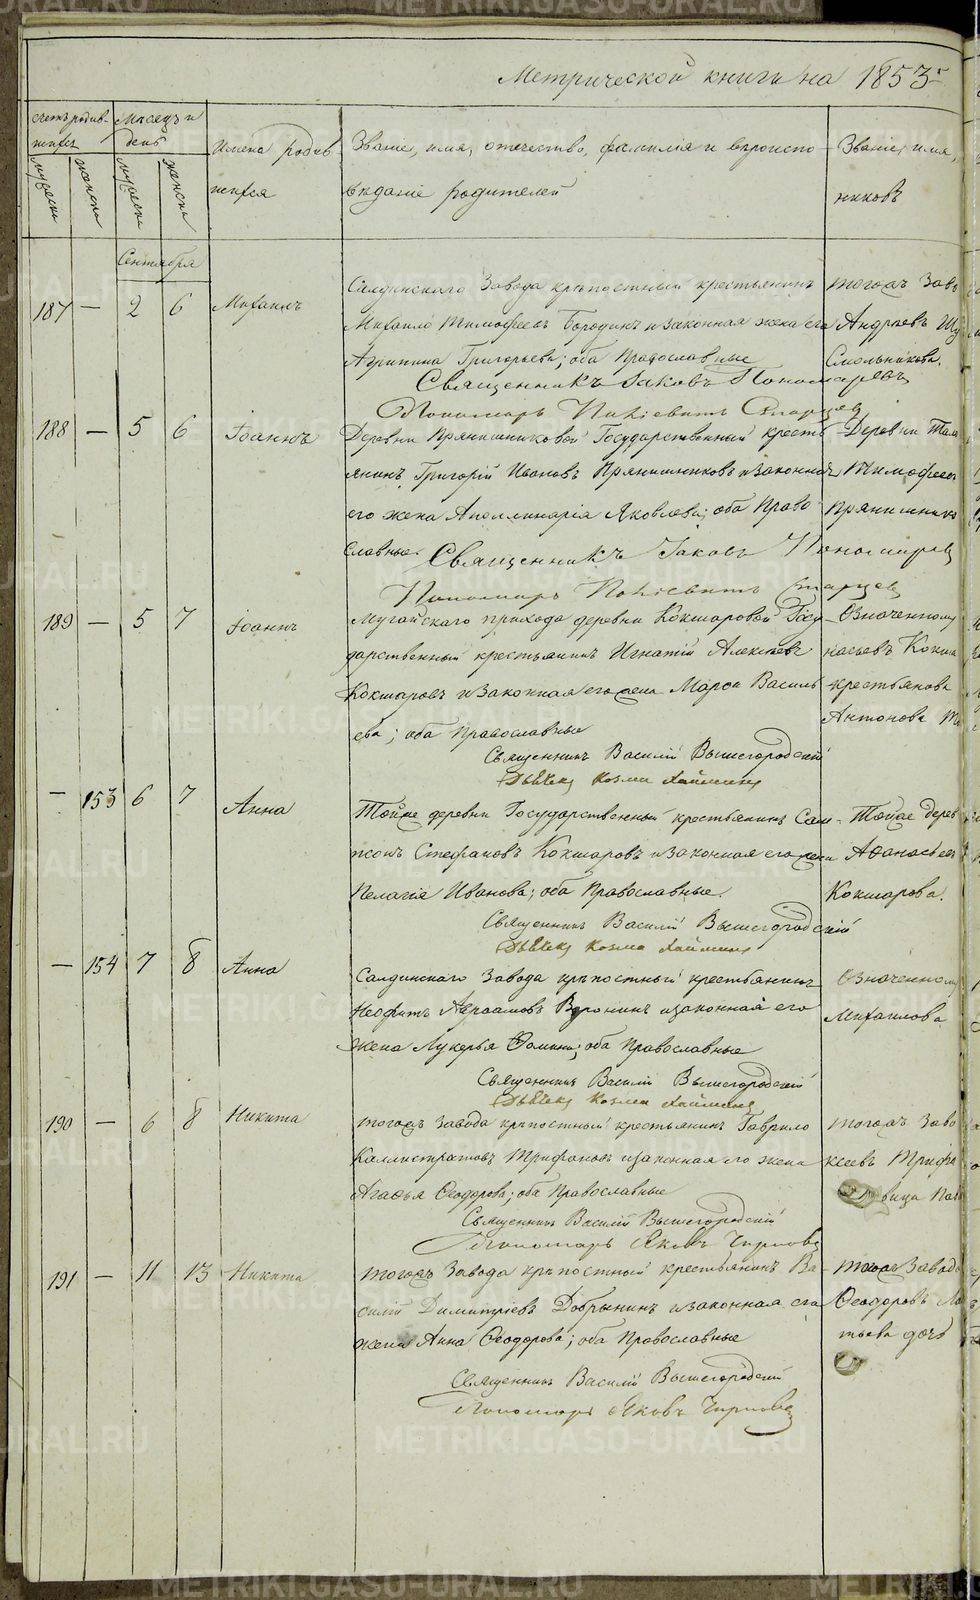 Метрической книги на 1853 г
счетъ родив-
шихся
Месяцъ и
день
мужеска
женска
мужеска
женска
Имена родив-
шихся
Званіе, имя, отечество, фамилія и вероиспо-
ведание родителей
Званіе, имя,
никовъ
Сентября
187 — 2 6 Михаилъ
Салдинскаго Завода крѣпостный крестьянинъ
Михайло Тимофеевъ Бородинъ и законная жена его
Агрипина Григорьева; оба Православные
Священникъ Іаковъ Пономаревъ
Пономарь Старцев
тогожъ Заво
Андреевъ
Смольникова.
188 — 5 6 Іоаннъ
Деревни Прянишниковой Государственный кресть-
янинъ Григорій Ивановъ Прянишниковъ и законная
его жена Аполлинарія Яковлева; оба Право-
славные.
Священникъ Іаковъ Пономарев
Пономарь Старцев
Деревни
Тимофеев
Прянишник
189 — 5 7 Іоаннъ
Мугайскаго прихода деревни Кокшаровой Госу-
дарственный крестьянинъ Игнатій Алексеевъ
Кокшаровъ и законная его жена Марфа Василь-
ева; оба Православные
Священникъ Василій Вышегородскій
Дьячекъ Козма
Означенному
насьевъ Кокша
крестьянова
Антонова
— 153 6 7 Анна
Тойже деревни Государственный крестьянинъ Сам-
псонъ Стефановъ Кокшаровъ и законная его жена
Пелагія Иванова; оба Православные.
Священникъ Василій Вышегородскій
Дьячекъ Козма
Тойже дерев
Афанасьев
Кокшарова.
— 154 7 8 Анна
Салдинскаго Завода крѣпостный крестьянинъ
Неофитъ Авраамовъ Воронинъ и законная его
жена Лукерья Фомина; оба Православные
Священникъ Василій Вышегородскій
Дьячекъ Козма
Означенному
Михаилова
190 — 6 8 Никита
тогожъ Завода крѣпостный крестьянинъ Гаврило
Каллистратовъ Трифоновъ и законная его жена
Агафья Феодорова; оба Православные
Священникъ Василій Вышегородскій
Пономарь Яковъ Чирковъ
тогожъ Заво
ксеевъ Трифо
вица
191 — 11 13 Никита
тогожъ Завода крѣпостный крестьянинъ Ва-
силій Димитріевъ Добрынинъ и законная его
жена Анна Феодорова; оба Православные
Священникъ Василій Вышегородскій
Пономарь Яковъ Чирковъ
тогоже Завода
Феодоровъ
тьева дочь
METRIKI.GASO-URAL.RU